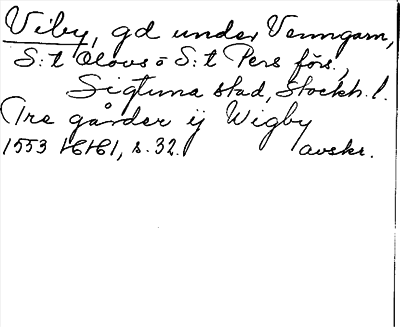 Viby, gd under Venngarn,
S:t Olovs o S:t Pers förs.,
Sigtuna stad, Stockh. l.
Tre gårder ij Wigby
1553 16161, s. 32. avskr.